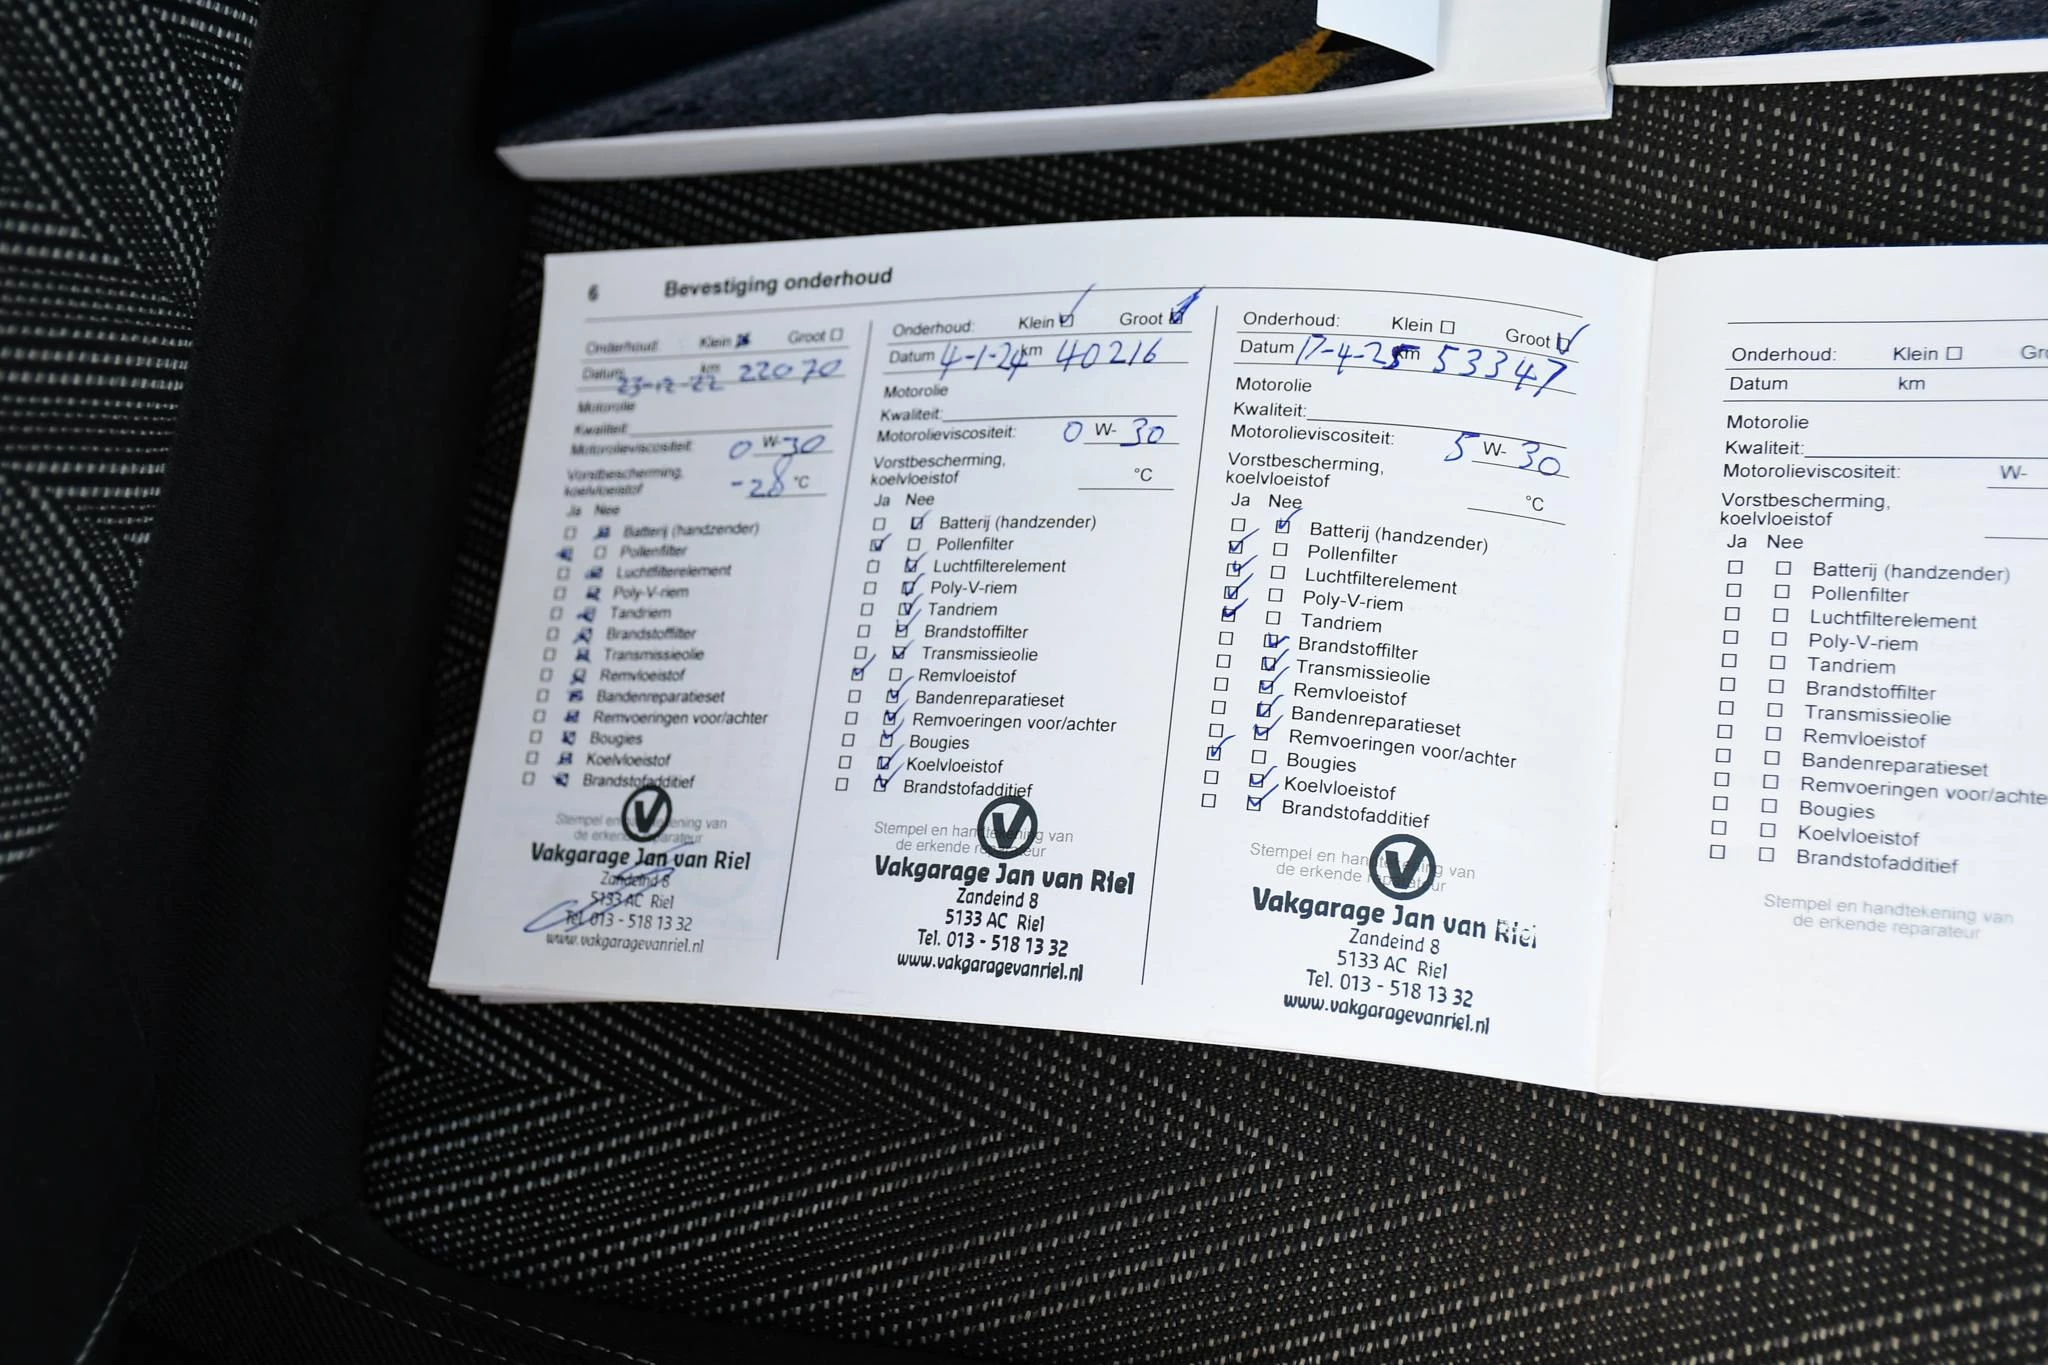 6 Bevestiging onderhoud
Onderhoud: Klein Groot
Datum 23-12-22 km 22070
Motorolie
Kwaliteit:
Motorolieviscositeit: 0 W- 30
Vorstbescherming,
koelvloeistof -28 °C
Ja Nee
Batterij (handzender)
Pollenfilter
Luchtfilterelement
Poly-V-riem
Tandriem
Brandstoffilter
Transmissieolie
Remvloeistof
Bandenreparatieset
Remvoeringen voor/achter
Bougies
Koelvloeistof
Brandstofadditief
Stempel en handtekening van
de erkende reparateur
V
Vakgarage Jan van Riel
Zandeind 8
5133 AC Riel
Tel. 013 - 518 13 32
www.vakgaragevanriel.nl
Onderhoud: Klein Groot
Datum 4-1-24 km 40216
Motorolie
Kwaliteit:
Motorolieviscositeit: 0 W- 30
Vorstbescherming,
koelvloeistof °C
Ja Nee
Batterij (handzender)
Pollenfilter
Luchtfilterelement
Poly-V-riem
Tandriem
Brandstoffilter
Transmissieolie
Remvloeistof
Bandenreparatieset
Remvoeringen voor/achter
Bougies
Koelvloeistof
Brandstofadditief
Stempel en handtekening van
de erkende reparateur
V
Vakgarage Jan van Riel
Zandeind 8
5133 AC Riel
Tel. 013 - 518 13 32
www.vakgaragevanriel.nl
Onderhoud: Klein Groot
Datum 17-4-25 km 53347
Motorolie
Kwaliteit:
Motorolieviscositeit: 5 W- 30
Vorstbescherming,
koelvloeistof °C
Ja Nee
Batterij (handzender)
Pollenfilter
Luchtfilterelement
Poly-V-riem
Tandriem
Brandstoffilter
Transmissieolie
Remvloeistof
Bandenreparatieset
Remvoeringen voor/achter
Bougies
Koelvloeistof
Brandstofadditief
Stempel en handtekening van
de erkende reparateur
V
Vakgarage Jan van Riel
Zandeind 8
5133 AC Riel
Tel. 013 - 518 13 32
www.vakgaragevanriel.nl
Onderhoud: Klein Gr
Datum km
Motorolie
Kwaliteit:
Motorolieviscositeit: W-
Vorstbescherming,
koelvloeistof
Ja Nee
Batterij (handzender)
Pollenfilter
Luchtfilterelement
Poly-V-riem
Tandriem
Brandstoffilter
Transmissieolie
Remvloeistof
Bandenreparatieset
Remvoeringen voor/achte
Bougies
Koelvloeistof
Brandstofadditief
Stempel en handtekening van
de erkende reparateur